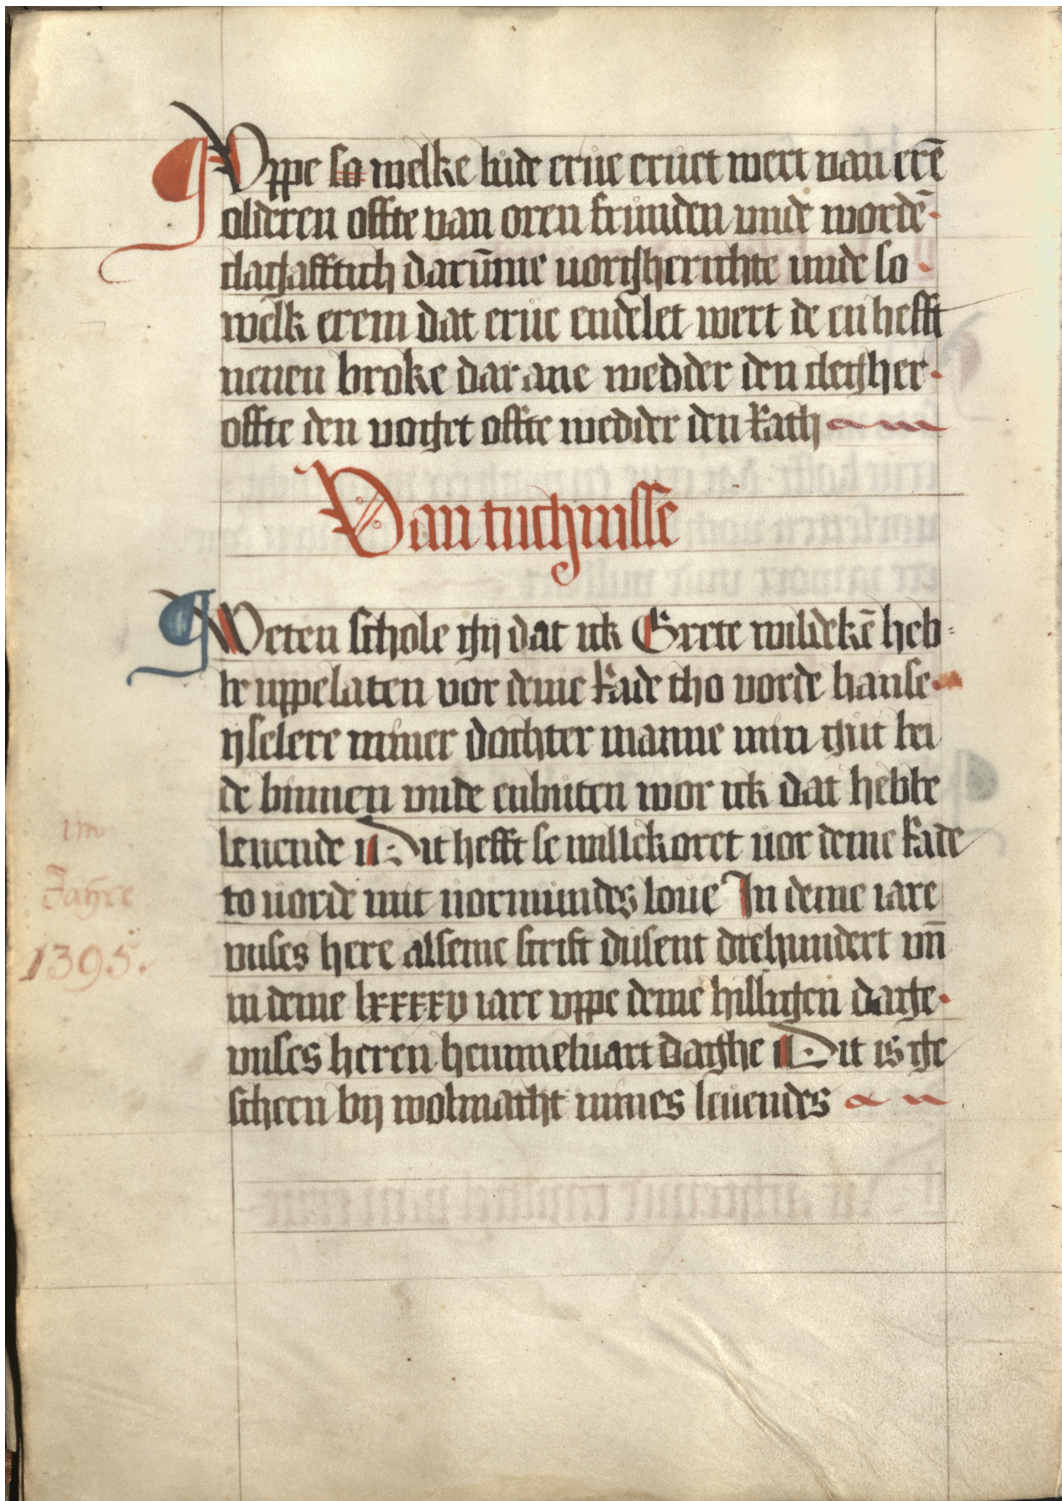 Uppe so welke lude erue eruet wert van erē
olderen offte van oren frunden vnde wordē
claghafftich darūme vorgherichte vnde so
welk erem dat erue endelet wert de en hefft
nenen broke dar ane wedder den clegher
offte den voghet offte wedder den Rath
Van tuchnisse
Weten schole gij dat ick Grete wildekē heb
be uppelaten vor deme Rade tho vorde hanse
ijselere miner dochter manne min gut bei
de binnen vnde enbuten wor ick dat hebbe
leuende Dit hefft se willekoret vor deme Rade
to uorde mit uormundes loue In deme iare
vnses here alseme scrift dusent drehundert vn̄
in deme lxxxxv iare vppe deme hillighen daghe
vnses heren hemmeluart daghe Dit is ghe
scheen bij wolmacht mines leuendes
im
Jahre
1395.